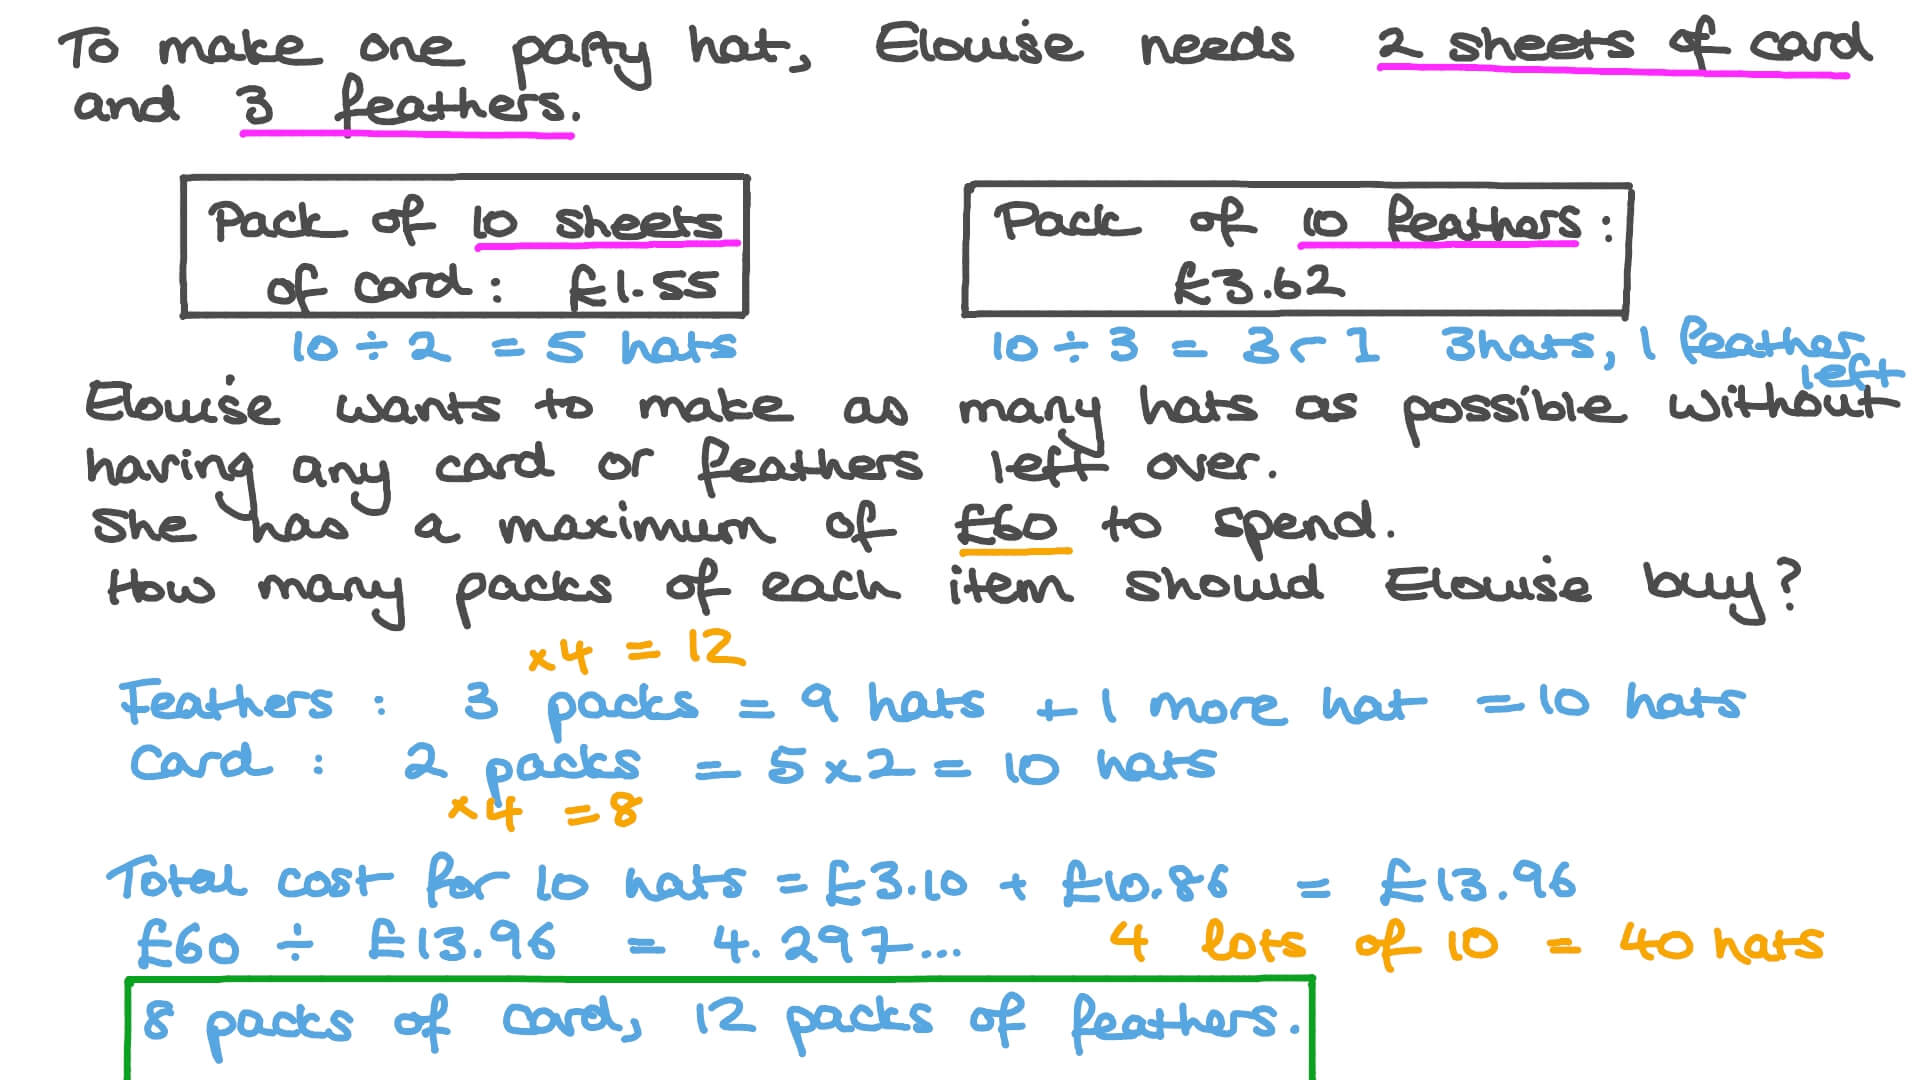 To make one party hat, Elouise needs 2 sheets of card
and 3 feathers.
Pack of 10 sheets
of card: £1.55
Pack of 10 feathers:
£3.62
10 ÷ 2 = 5 hats
10 ÷ 3 = 3 r 1 3 hats, 1 feather
left
Elouise wants to make as many hats as possible without
having any card or feathers left over.
She has a maximum of £60 to spend.
How many packs of each item should Elouise buy?
×4 = 12
Feathers: 3 packs = 9 hats + 1 more hat = 10 hats
Card: 2 packs = 5 × 2 = 10 hats
×4 = 8
Total cost for 10 hats = £3.10 + £10.86 = £13.96
£60 ÷ £13.96 = 4.297... 4 lots of 10 = 40 hats
8 packs of card, 12 packs of feathers.